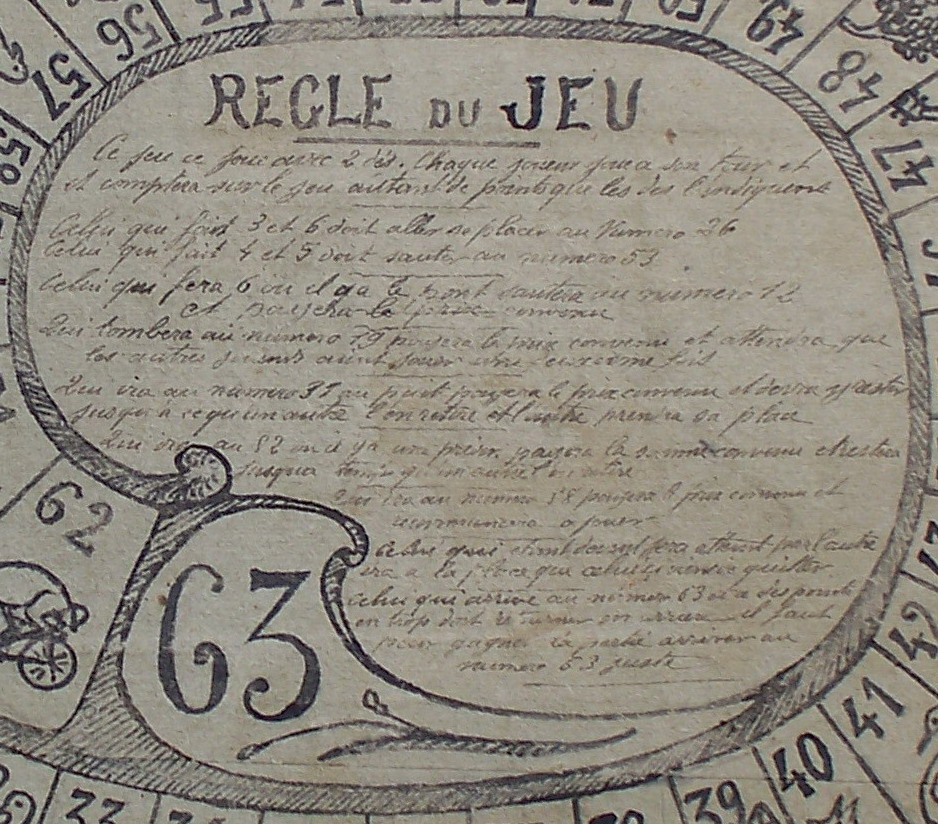 55
56
57
58
49
48
47
REGLE DU JEU
Ce jeu ce joue avec 2 dés. Chaque joueur joue a son tour et
et comptera sur le jeu autant de points que les des l'indiquent
Celui qui fait 3 et 6 doit aller se placer au Numero 26
Celui qui fait 4 et 5 doit sauter au numero 53
Celui qui fera 6 ou il y a le pont sautera au numero 12
et payera le prix convenu
Qui tombera au numero 19 payera le prix convenu et attendra que
les autres joueurs aient jouer une fois
Qui ira au numero 31 au puit payera le prix convenu et devra y rester
jusqu'a ce qu'un autre l'en retire et l'autre prendra sa place
Qui ira au 52 ou il y a une prison payera la somme convenu et restera
jusqua qu'un autre
Qui ira au numero 58 payera le prix convenu et
recommencera a jouer
Celui qui sera atteint par l'autre
ira a la place que celui ci quitter
Celui qui arrive au numero 63 et a des points
en trop doit retourner en arriere il faut
pour gagner la partie arriver au
numero 63 juste
62
63
42
41
40
39
33